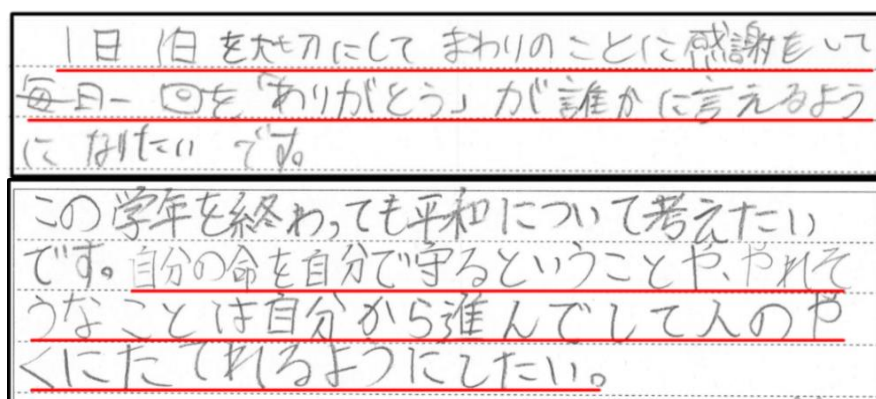 1日1日を大切にして まわりのことに感謝をして
毎日一回を「ありがとう」が誰かに言えるよう
になりたいです。
この学年を終わっても平和について考えたい
です。自分の命を自分で守るということや、やれそ
うなことは自分から進んでして人のや
くにたてれるようにしたい。